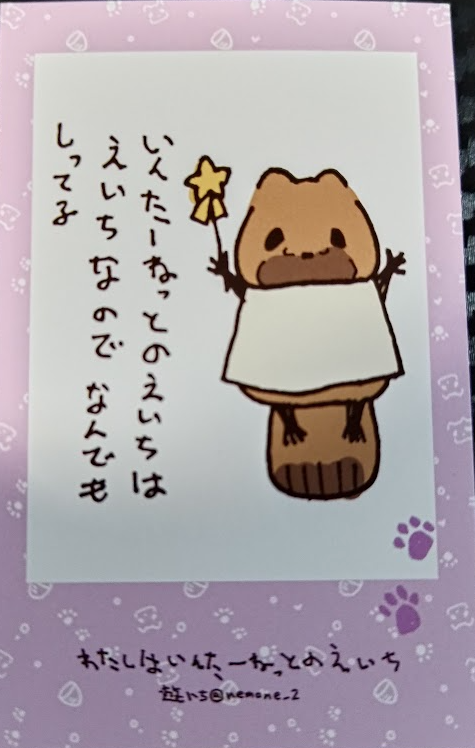 いんたーねっとのえいちは
えいちなので なんでも
しってる
わたしはいんたーねっとのえいち
遊いち@nemone_2